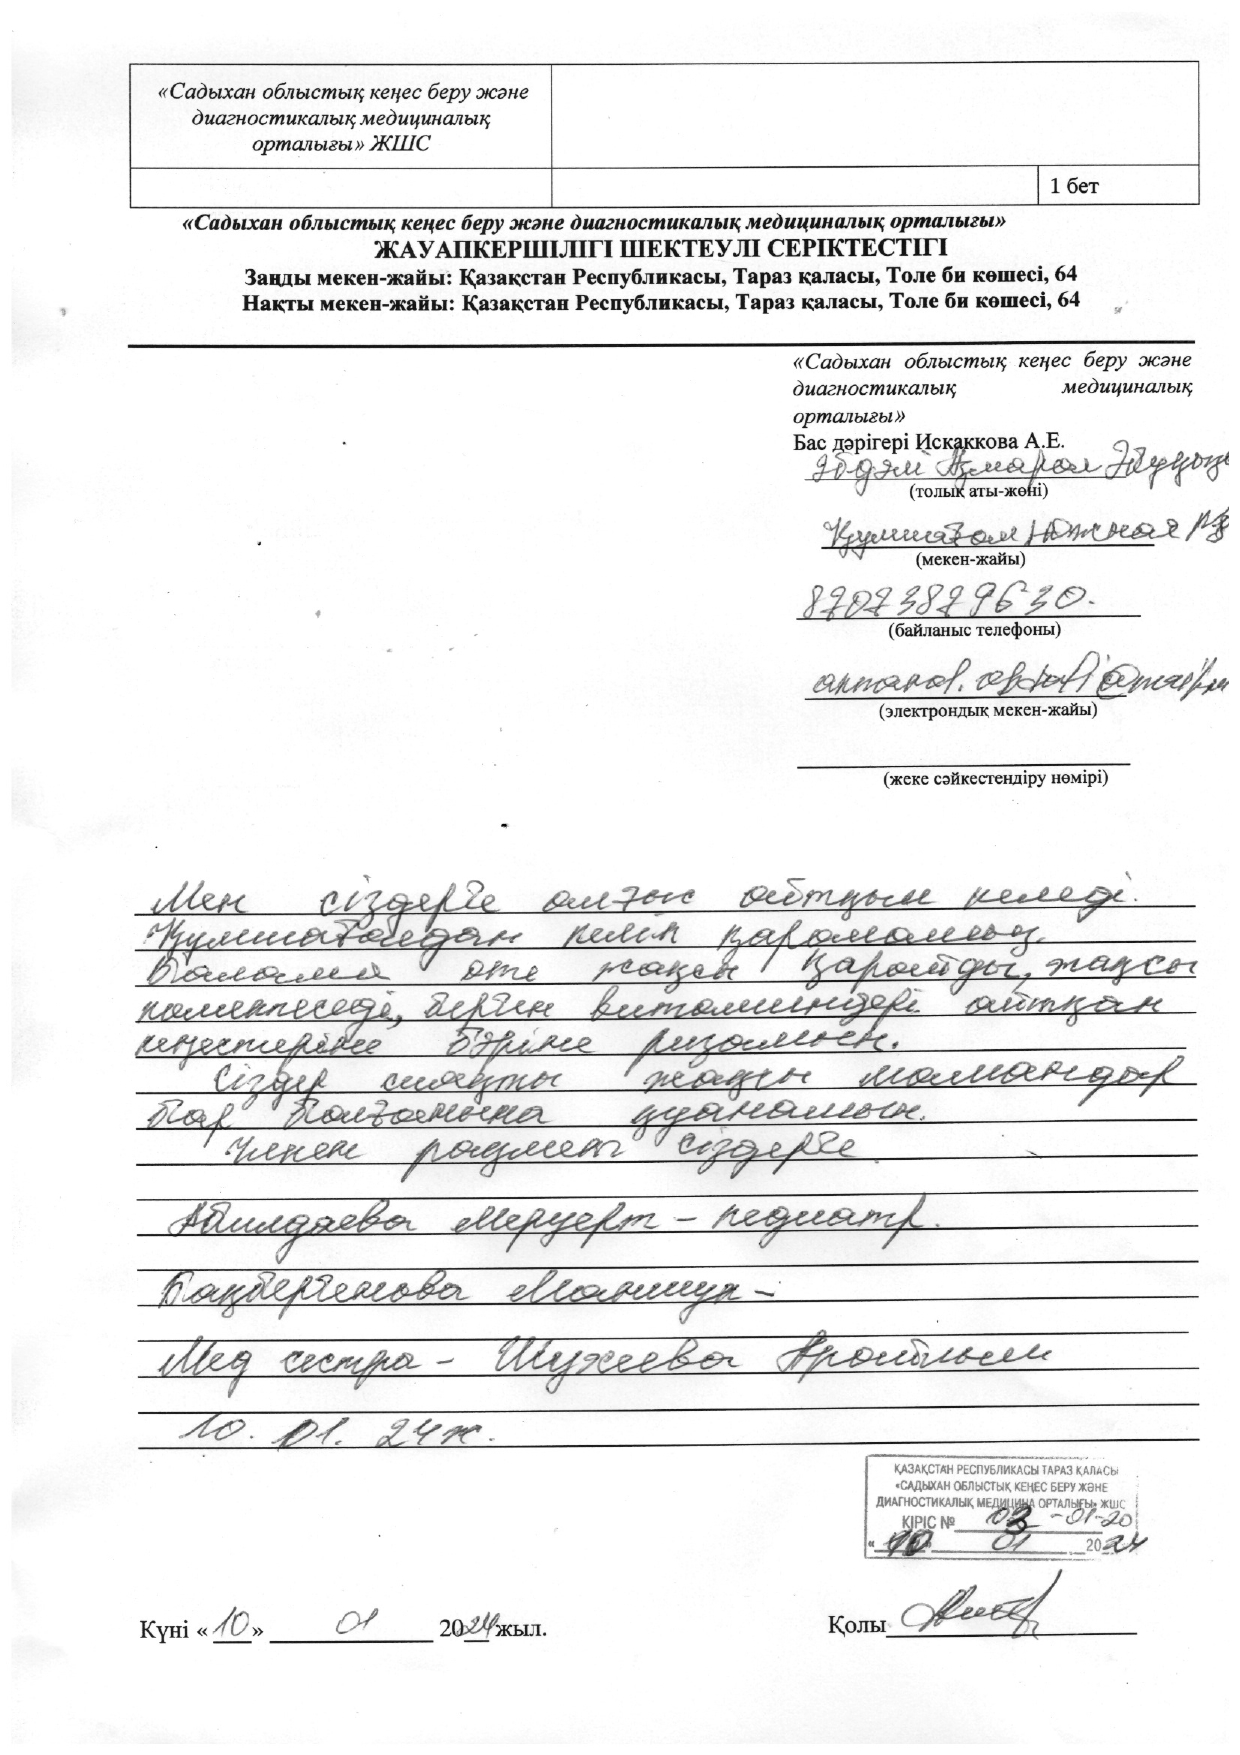 «Садыхан облыстық кеңес беру және
диагностикалық медициналық
орталығы» ЖШС
1 бет
«Садыхан облыстық кеңес беру және диагностикалық медициналық орталығы»
ЖАУАПКЕРШІЛІГІ ШЕКТЕУЛІ СЕРІКТЕСТІГІ
Заңды мекен-жайы: Қазақстан Республикасы, Тараз қаласы, Толе би көшесі, 64
Нақты мекен-жайы: Қазақстан Республикасы, Тараз қаласы, Толе би көшесі, 64
«Садыхан облыстық кеңес беру және
диагностикалық медициналық
орталығы»
Бас дәрігері Искаккова А.Е.
Әбдәлі Ақмарал
(толық аты-жөні)
Южная
(мекен-жайы)
87073879630.
(байланыс телефоны)
(электрондық мекен-жайы)
(жеке сәйкестендіру нөмірі)
Мен сіздерге алғыс айтқым келеді.
келіп қараламыз.
Баламды өте жақсы қарайды, жақсы
көмектеседі, берген витаминдері айтқан
кеңестеріне бәріне ризамын.
Сіздер сияқты жақсы мамандар
бар болғанына қуанамын.
Үлкен рахмет сіздерге.
Абилдаева Меруерт – педиатр.
Бақбергенова Маншук –
Мед сестра – Шужеева Арайлым
10. 01. 24ж.
ҚАЗАҚСТАН РЕСПУБЛИКАСЫ ТАРАЗ ҚАЛАСЫ
«САДЫХАН ОБЛЫСТЫҚ КЕҢЕС БЕРУ ЖӘНЕ
ДИАГНОСТИКАЛЫҚ МЕДИЦИНА ОРТАЛЫҒЫ» ЖШС
КІРІС № 03 -01-20
«10» 01 2024
Күні «10» 01 2024 жыл. Қолы